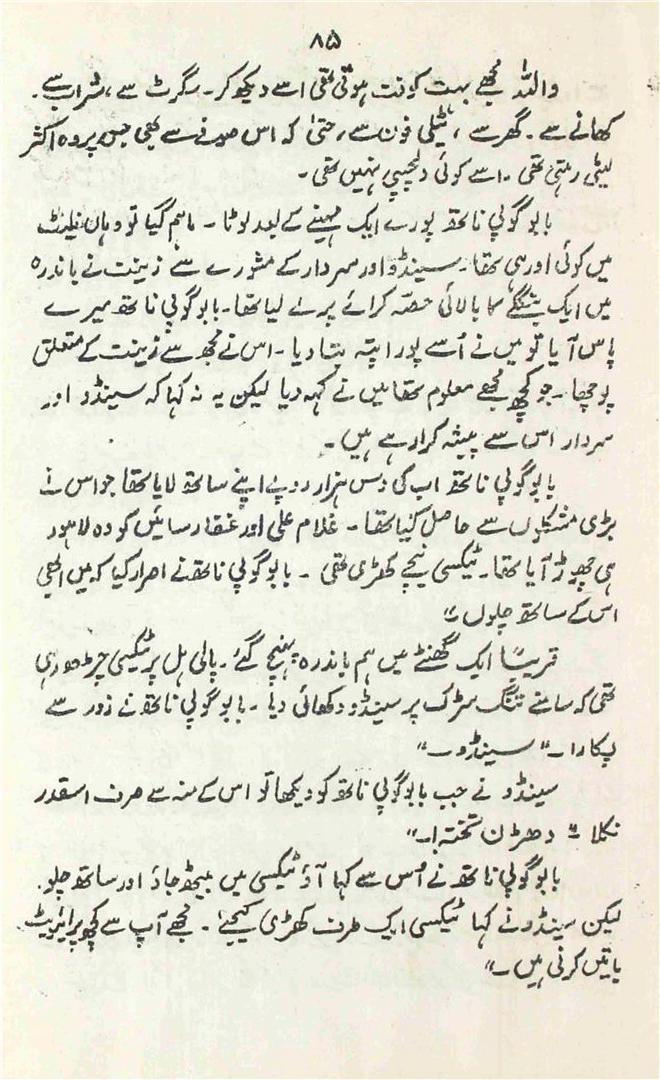 ۸۵
واللہ مجھے بہت کوفت ہوتی تھی اسے دیکھ کر۔ سگرٹ سے، شراب سے۔
کھانے سے۔ گھر سے، ٹیلی فون سے، حتیٰ کہ اس صوفے سے بھی جس پر وہ اکثر
لیٹی رہتی تھی۔ اسے کوئی دلچسپی نہیں تھی۔
بابو گوپی ناتھ پورے ایک مہینے کے بعد لوٹا۔ ماہم گیا تو وہاں فلیٹ
میں کوئی اور ہی تھا۔ سینڈو اور سردار کے مشورے سے زینت نے باندرہ
میں ایک بنگلے کا بالائی حصہ کرائے پر لے لیا تھا۔ بابو گوپی ناتھ میرے
پاس آیا تو میں نے اُسے پورا پتہ بتا دیا۔ اس نے مجھ سے زینت کے متعلق
پوچھا۔ جو کچھ مجھے معلوم تھا میں نے کہہ دیا لیکن یہ نہ کہا کہ سینڈو اور
سردار اس سے پیشہ کرا رہے ہیں۔
بابو گوپی ناتھ اب کی دس ہزار روپے اپنے ساتھ لایا تھا جو اس نے
بڑی مشکلوں سے حاصل کیا تھا۔ غلام علی اور غفار سائیں کو وہ لاہور
ہی چھوڑ آیا تھا۔ ٹیکسی نیچے کھڑی تھی۔ بابو گوپی ناتھ نے اصرار کیا کہ میں ابھی
اس کے ساتھ چلوں۔"
قریباً ایک گھنٹے میں ہم باندرہ پہنچ گئے۔ پالی ہل پر ٹیکسی چڑھ رہی
تھی کہ سامنے تنگ سڑک پر سینڈو دکھائی دیا۔ بابو گوپی ناتھ نے زور سے
پکارا۔ "سینڈو۔"
سینڈو نے جب بابو گوپی ناتھ کو دیکھا تو اس کے منہ سے صرف اسقدر
نکلا۔ "دھڑن تختہ!۔"
بابو گوپی ناتھ نے اُس سے کہا آؤ ٹیکسی میں بیٹھ جاؤ اور ساتھ چلو۔
لیکن سینڈو نے کہا ٹیکسی ایک طرف کھڑی کیجیئے۔ مجھے آپ سے کچھ پرائیویٹ
باتیں کرنی ہیں۔"